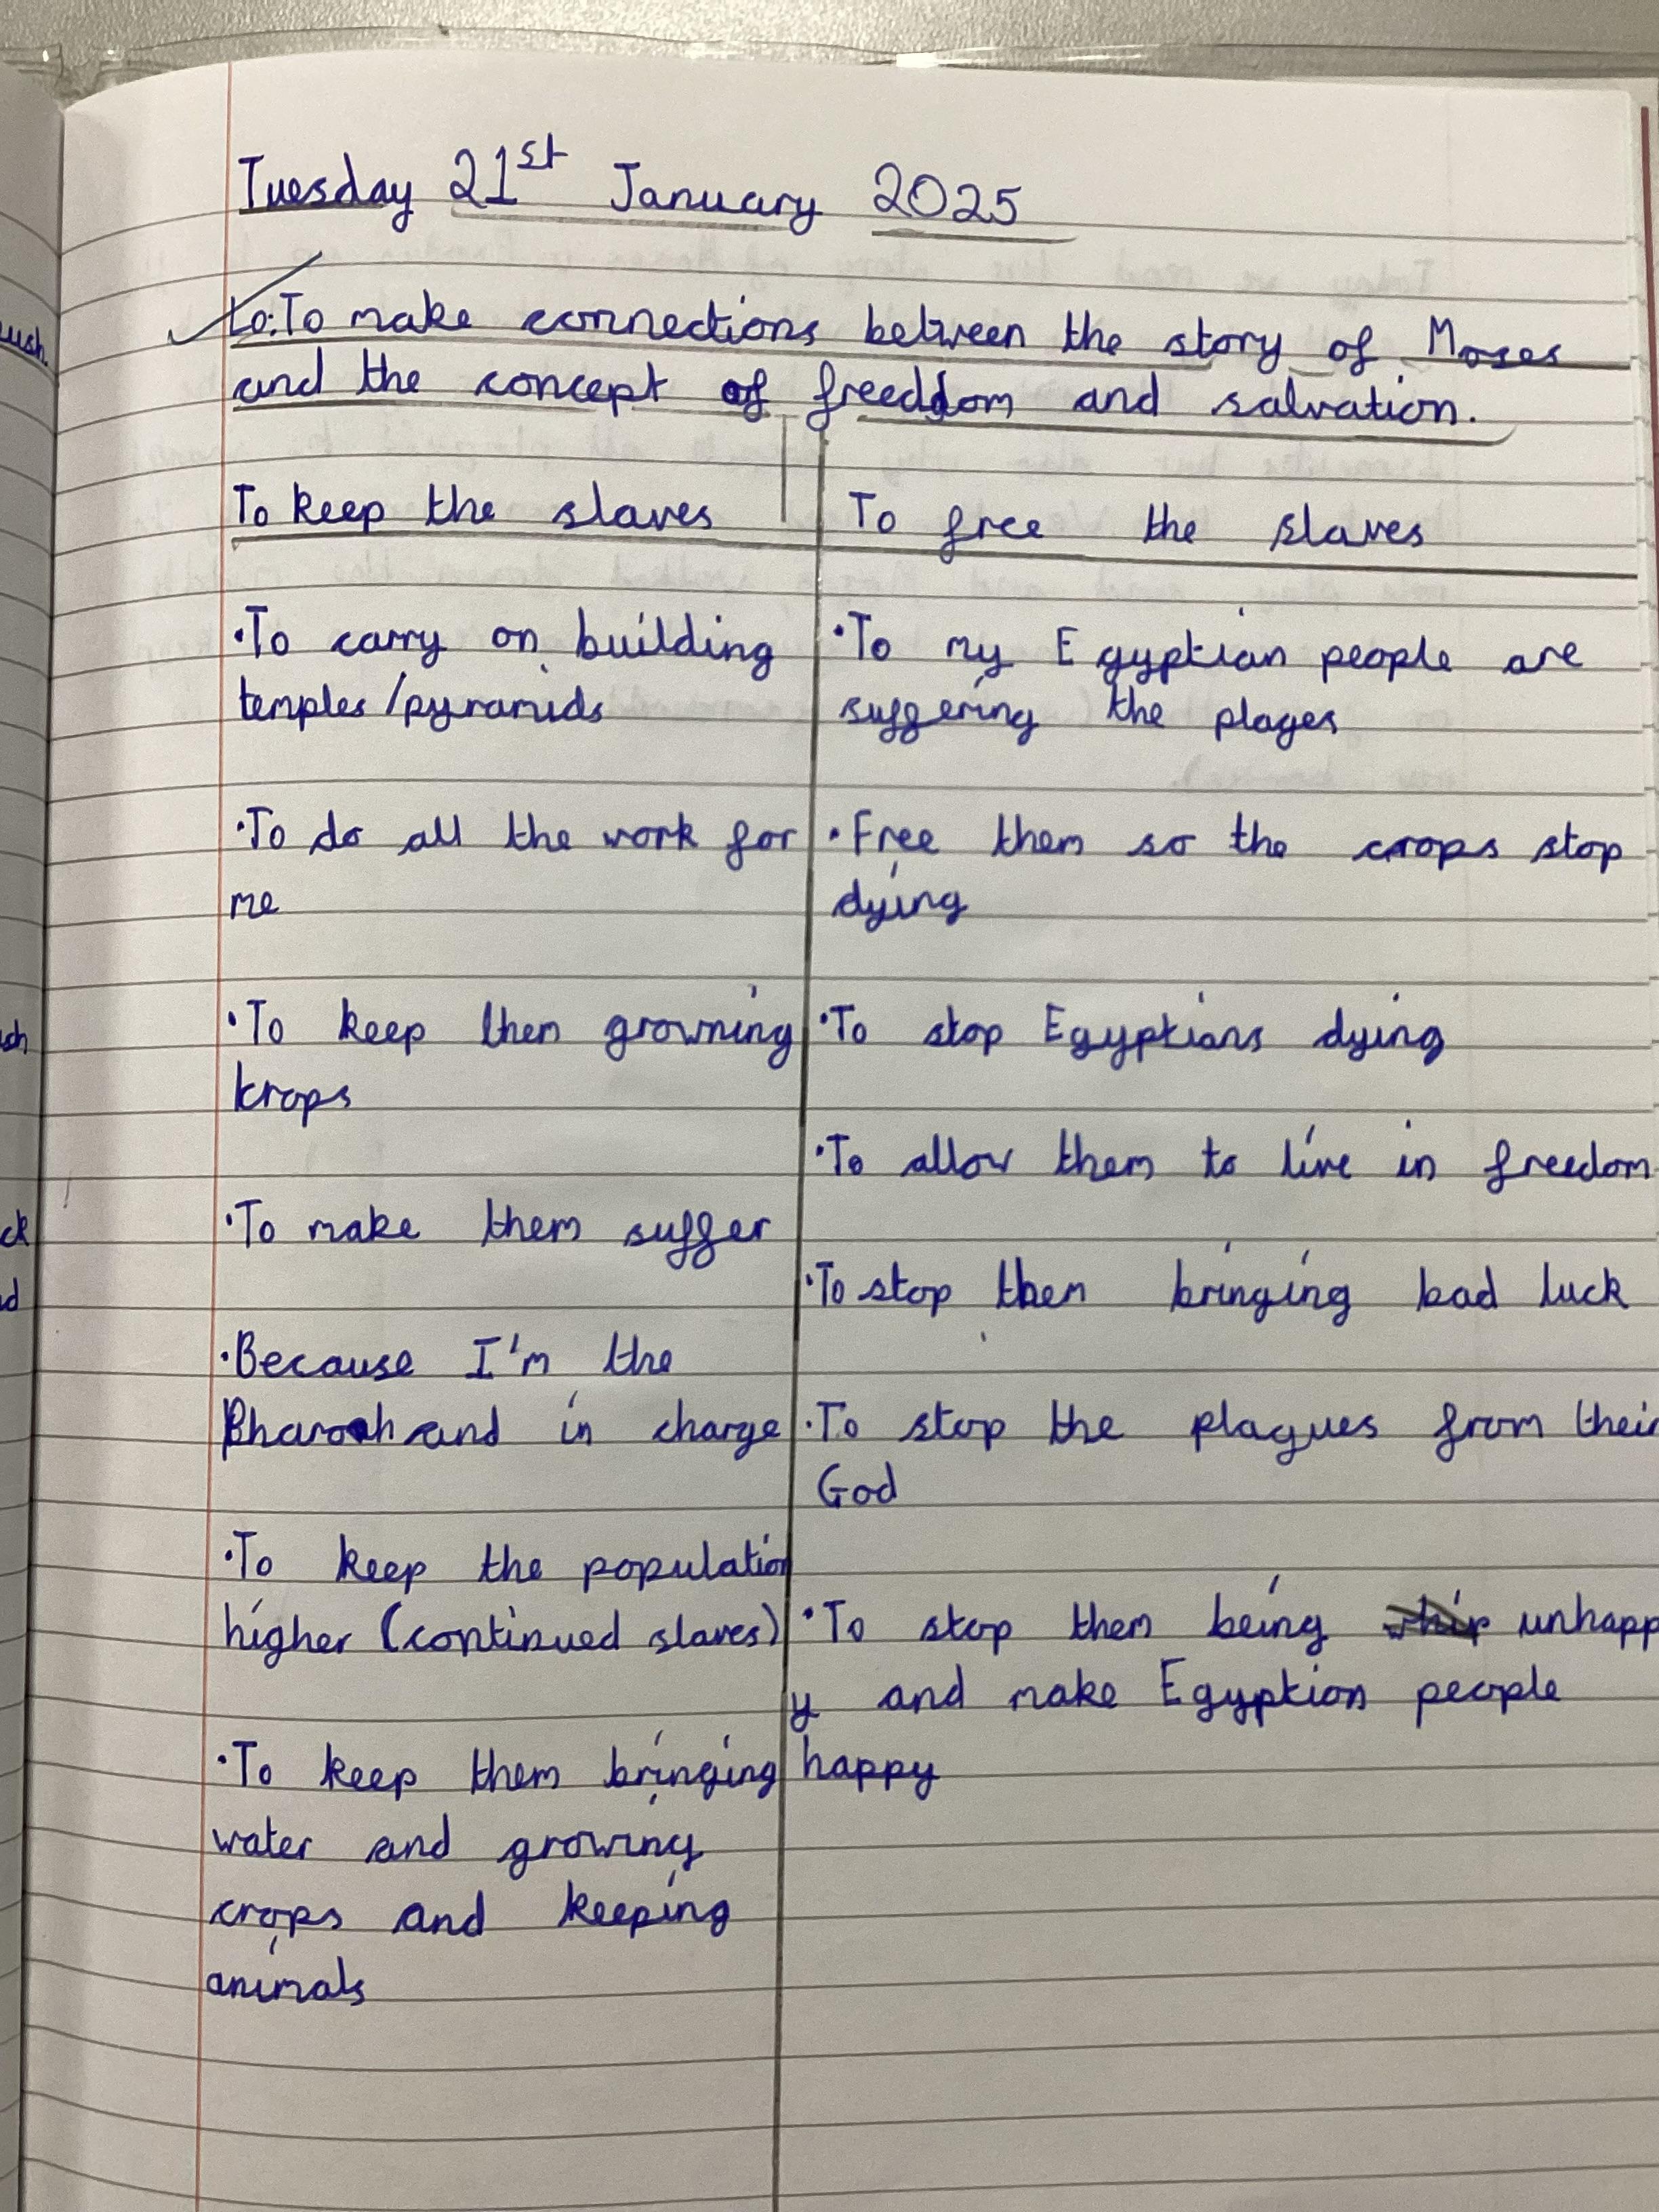 Tuesday 21st January 2025
Lo: To make connections between the story of Moses
and the concept of freedom and salvation.
To keep the slaves
·To carry on building
temples/pyramids
·To do all the work for
me
·To keep them growning
krops
·To make them suffer
·Because I'm the
Pharoah and in charge
·To keep the population
higher (continued slaves)
·To keep them bringing
water and growing
crops and keeping
animals
To free the slaves
·To my Egyptian people are
suffering the plages
·Free them so the crops stop
dying
·To stop Egyptians dying
·To allow them to live in freedom
·To stop them bringing bad luck
·To stop the plagues from their
God
·To stop them being unhapp
y and make Egyption people
happy
ush.
sh
ck
d